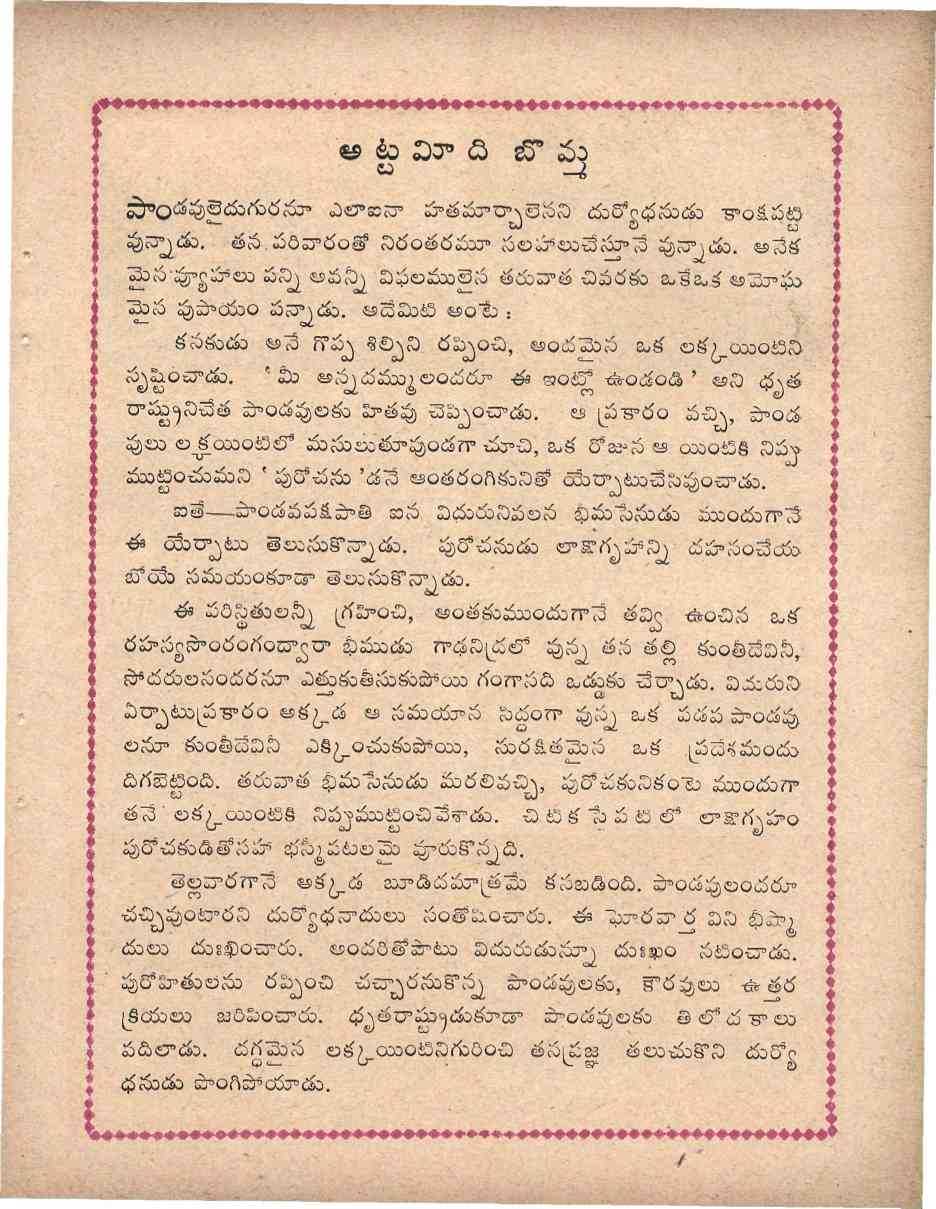 అట్టమీది బొమ్మ
పాండవులైదుగురనూ ఎలాఐనా హతమార్చాలెనని దుర్యోధనుడు కాంక్షపట్టి
వున్నాడు. తన పరివారంతో నిరంతరమూ సలహాలుచేస్తూనే వున్నాడు. అనేక
మైన వ్యూహాలు పన్ని అవన్నీ విఫలములైన తరువాత చివరకు ఒకేఒక అమోఘ
మైన వుపాయం పన్నాడు. అదేమిటి అంటే :
కనకుడు అనే గొప్ప శిల్పిని రప్పించి, అందమైన ఒక లక్కయింటిని
సృష్టించాడు. ‘మీ అన్నదమ్ములందరూ ఈ ఇంట్లో ఉండండి’ అని ధృత
రాష్ట్రునిచేత పాండవులకు హితవు చెప్పించాడు. ఆ ప్రకారం వచ్చి, పాండ
వులు లక్కయింటిలో మసులుతూవుండగా చూచి, ఒక రోజున ఆ యింటికి నిప్పు
ముట్టించుమని ‘పురోచను’డనే ఆంతరంగికునితో యేర్పాటుచేసివుంచాడు.
ఐతే—పాండవపక్షపాతి ఐన విదురునివలన భీమసేనుడు ముందుగానే
ఈ యేర్పాటు తెలుసుకొన్నాడు. పురోచనుడు లాక్షాగృహాన్ని దహనంచేయ
బోయే సమయంకూడా తెలుసుకొన్నాడు.
ఈ పరిస్థితులన్నీ గ్రహించి, అంతకుముందుగానే తవ్వి ఉంచిన ఒక
రహస్యసొరంగంద్వారా భీముడు గాఢనిద్రలో వున్న తన తల్లి కుంతీదేవినీ,
సోదరులనందరనూ ఎత్తుకుతీసుకుపోయి గంగానది ఒడ్డుకు చేర్చాడు. విదురుని
ఏర్పాటుప్రకారం అక్కడ ఆ సమయాన సిద్ధంగా వున్న ఒక పడవ పాండవు
లనూ కుంతీదేవినీ ఎక్కించుకుపోయి, సురక్షితమైన ఒక ప్రదేశమందు
దిగబెట్టింది. తరువాత భీమసేనుడు మరలివచ్చి, పురోచకునికంటె ముందుగా
తనే లక్కయింటికి నిప్పుముట్టించివేశాడు. చిటికసేపటిలో లాక్షాగృహం
పురోచకుడితోసహా భస్మీపటలమై వూరుకొన్నది.
తెల్లవారగానే అక్కడ బూడిదమాత్రమే కనబడింది. పాండవులందరూ
చచ్చివుంటారని దుర్యోధనాదులు సంతోషించారు. ఈ ఘోరవార్త విని భీష్మా
దులు దుఃఖించారు. అందరితోపాటు విదురుడున్నూ దుఃఖం నటించాడు.
పురోహితులను రప్పించి చచ్చారనుకొన్న పాండవులకు, కౌరవులు ఉత్తర
క్రియలు జరిపించారు. ధృతరాష్ట్రుడుకూడా పాండవులకు తిలోదకాలు
వదిలాడు. దగ్ధమైన లక్కయింటినిగురించి తనప్రజ్ఞ తలుచుకొని దుర్యో
ధనుడు పొంగిపోయాడు.